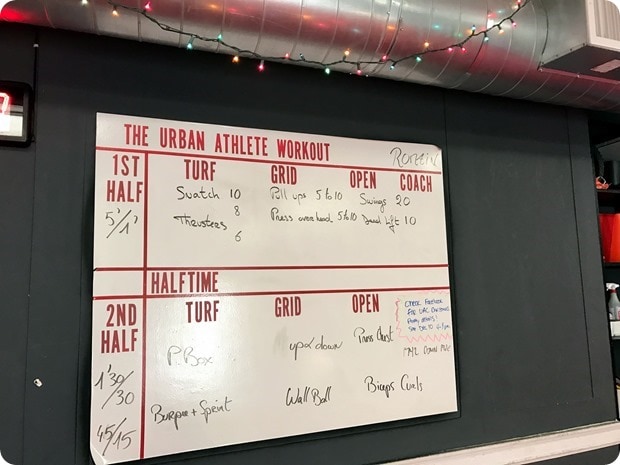 THE URBAN ATHLETE WORKOUT
1ST HALF TURF GRID OPEN COACH
5'/1' Snatch 10 Pull ups 5 to 10 Swings 20
Thrusters 8 Press overhead 5 to 10 Dead Lift 10
6
HALFTIME
2ND HALF TURF GRID OPEN
Check Facebook
For UAC Christmas
Party details!
1'30/30 P. Box up & down Press Chest
45/15 Burpee + Sprint Wall Ball Biceps Curls